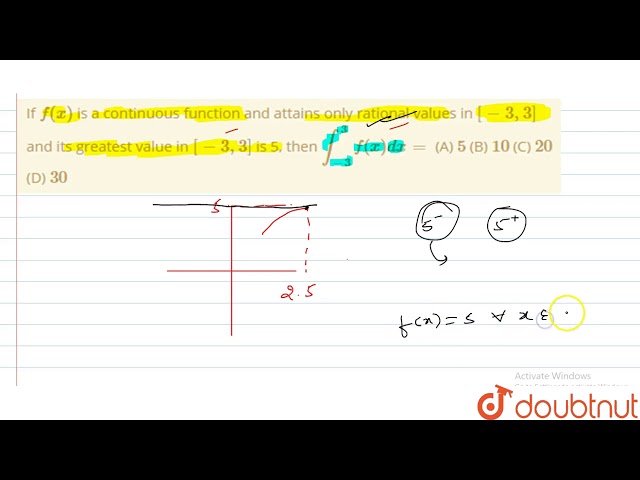 If f(x) is a continuous function and attains only rational values in [−3, 3]
and its greatest value in [−3, 3] is 5, then ∫₋₃⁺³ f(x) dx = (A) 5 (B) 10 (C) 20
(D) 30
5
5⁻ 5⁺
2.5
f(x) = 5 ∀ x ε
Activate Windows
doubtnut